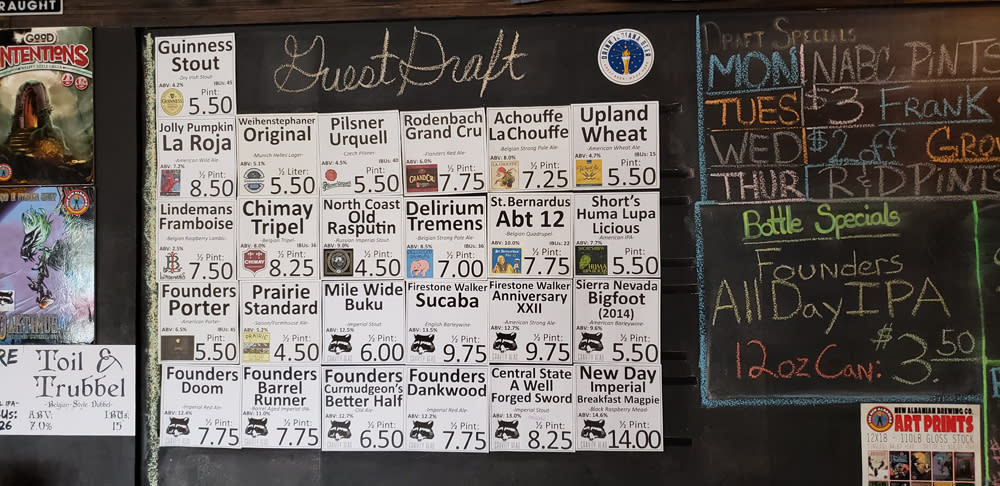 RAUGHT
GOOD
INTENTIONS
RE
Toil &
Trubbel
-Belgian-Style Dubbel-
ABV:
IBUs:
7.0%
15
26
Guest Draft
DRINK INDIANA BEER
Guinness
Stout
-Dry Irish Stout-
ABV: 4.2%
IBUs: 45
Pint:
5.50
Jolly Pumpkin
La Roja
-American Wild Ale-
ABV: 7.2%
½ Pint:
8.50
Weihenstephaner
Original
-Munich Helles Lager-
ABV: 5.1%
½ Liter:
5.50
Pilsner
Urquell
-Czech Pilsner-
ABV: 4.5%
IBUs: 40
Pint:
5.50
Rodenbach
Grand Cru
-Flanders Red Ale-
ABV: 6.0%
½ Pint:
7.75
Achouffe
LaChouffe
-Belgian Strong Pale Ale-
ABV: 8.0%
½ Pint:
7.25
Upland
Wheat
-American Wheat Ale-
ABV: 4.7%
IBUs: 15
Pint:
5.50
Lindemans
Framboise
-Belgian Raspberry Lambic-
ABV: 2.5%
½ Pint:
7.50
Chimay
Tripel
-Belgian Tripel-
ABV: 8.0%
IBUs: 36
CHIMAY
½ Pint:
8.25
North Coast
Old
Rasputin
-Russian Imperial Stout-
ABV: 9.0%
½ Pint:
4.50
Delirium
Tremens
-Belgian Strong Pale Ale-
ABV: 8.5%
IBUs: 36
½ Pint:
7.00
St. Bernardus
Abt 12
-Belgian Quadrupel-
ABV: 10.0%
IBUs: 22
½ Pint:
7.75
Short's
Huma Lupa
Licious
-American IPA-
ABV: 7.7%
Pint:
5.50
Founders
Porter
-American Porter-
ABV: 6.5%
IBUs: 45
Pint:
5.50
Prairie
Standard
-Saison/Farmhouse Ale-
ABV: 5.2%
PRAIRIE
½ Pint:
4.50
Mile Wide
Buku
-Imperial Stout-
ABV: 12.5%
½ Pint:
6.00
Firestone Walker
Sucaba
-English Barleywine-
ABV: 13.5%
½ Pint:
9.75
Firestone Walker
Anniversary
XXII
-American Strong Ale-
ABV: 12.7%
½ Pint:
9.75
Sierra Nevada
Bigfoot
(2014)
-American Barleywine-
ABV: 9.6%
½ Pint:
5.50
Founders
Doom
-Imperial Red Ale-
ABV: 12.4%
½ Pint:
7.75
Founders
Barrel
Runner
-Barrel Aged Imperial IPA-
ABV: 11.0%
½ Pint:
7.75
Founders
Curmudgeon's
Better Half
-Old Ale-
ABV: 12.7%
½ Pint:
6.50
Founders
Dankwood
-Imperial Red Ale-
ABV: 12.2%
½ Pint:
7.75
Central State
A Well
Forged Sword
-Imperial Stout-
ABV: 13.0%
½ Pint:
8.25
New Day
Imperial
Breakfast Magpie
-Black Raspberry Mead-
ABV: 14.6%
½ Pint:
14.00
Draft Specials
MON NABC PINTS
TUES $3 FRANK
WED $2 off GRO
THUR R&D PINTS
Bottle Specials
Founders
All Day IPA
12oz Can: $3.50
NEW ALBANIAN BREWING CO.
ART PRINTS
12X18 - 110LB GLOSS STOCK